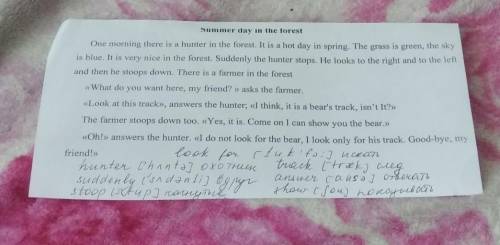 Summer day in the forest
One morning there is a hunter in the forest. It is a hot day in spring. The grass is green, the sky
is blue. It is very nice in the forest. Suddenly the hunter stops. He looks to the right and to the left
and then he stoops down. There is a farmer in the forest
«What do you want here, my friend? » asks the farmer.
«Look at this track», answers the hunter; «I think, it is a bear's track, isn't It?»
The farmer stoops down too. «Yes, it is. Come on I can show you the bear.»
«Oh!» answers the hunter. «I do not look for the bear, I look only for his track. Good-bye, my
friend!» look for искать
hunter [hʌntə] охотник track [træk] след
suddenly вдруг answer [a:nsə] отвечать
stoop [stu:p] show [ʃou] показывать